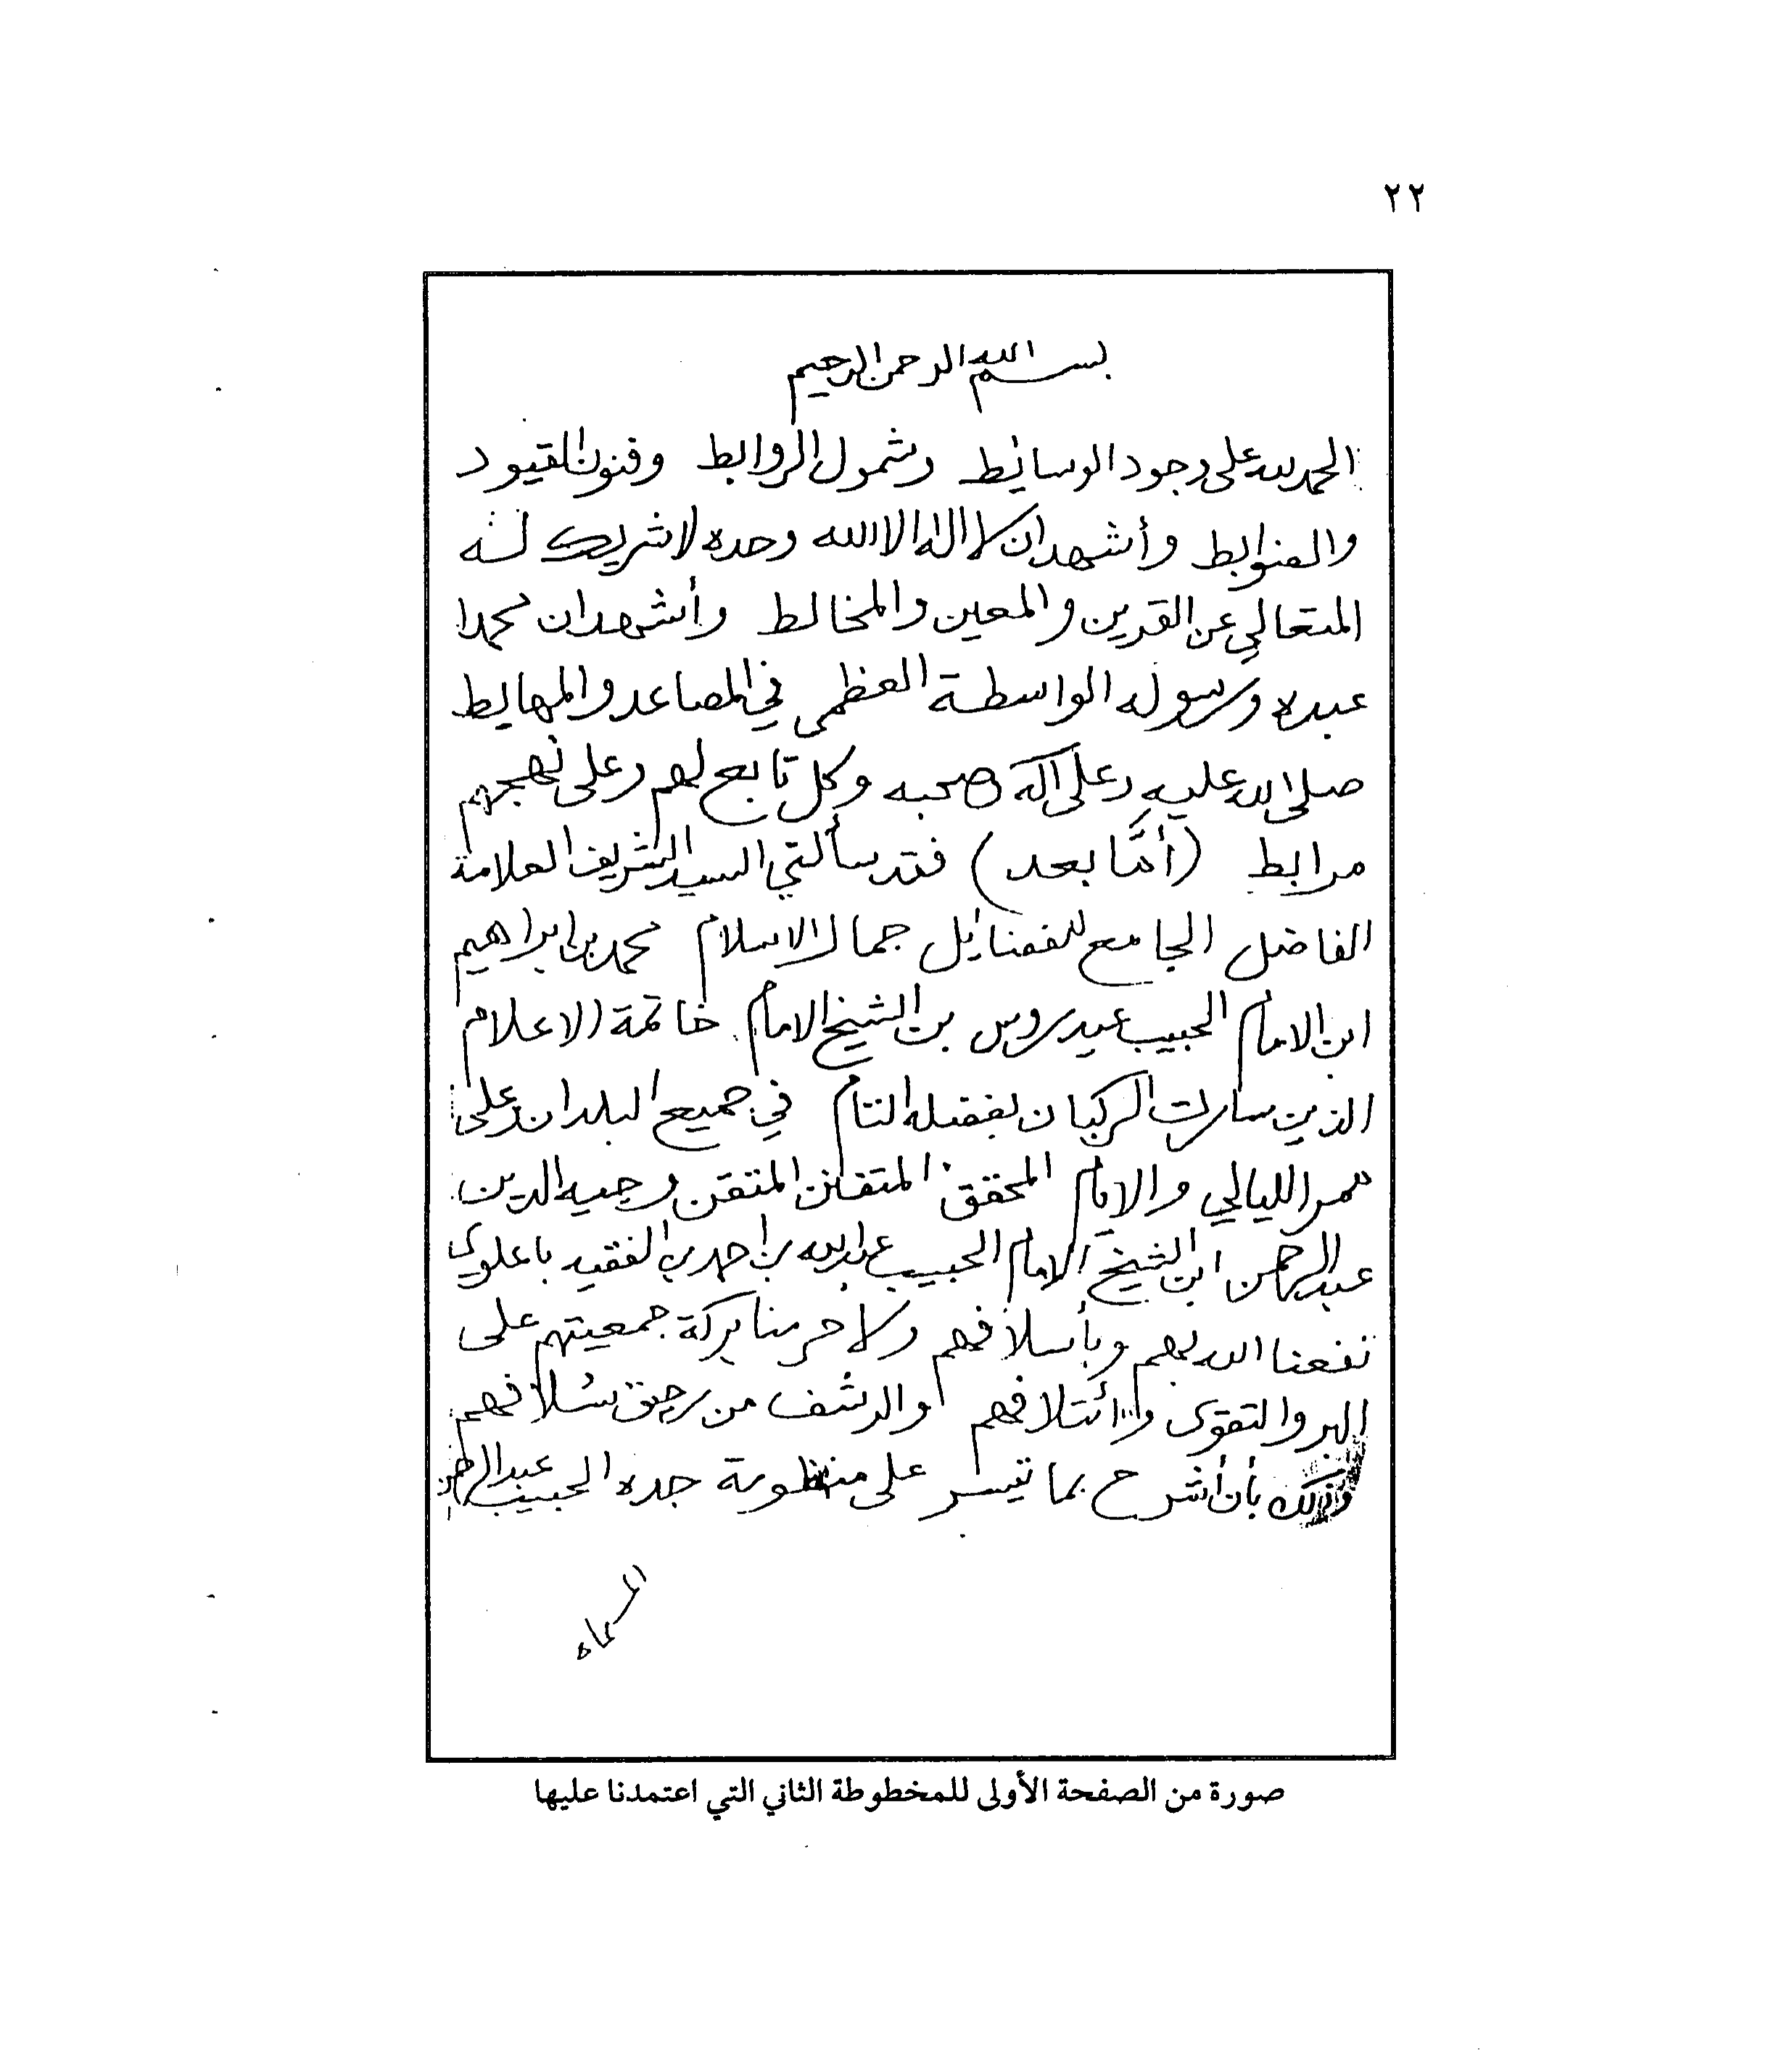 ٢٢
بسم الله الرحمن الرحيم
الحمد لله على وجود الوسائط وشمول الروابط وفنون القيود
والضوابط وأشهد ان لا اله الا الله وحده لا شريك له
المتعالي عن القرين والمعين والمخالط وأشهد ان محمدا
عبده ورسوله الواسطة العظمى في المصاعد والمهابط
صلى الله عليه وعلى اله وصحبه وكل تابع لهم وعلى نهجهم
مرابط (أمَّا بعد) فقد سألني السيد الشريف العلامة
الفاضل الجامع للفضايل جمال الاسلام محمد بن ابراهيم
ابن الامام الحبيب عيدروس بن الشيخ الامام خاتمة الاعلام
الذين سارت الركبان بفضله التام في جميع البلدان وعلى
ممر الليالي والايام المحقق المتفنن المتقن وجيه الدين
عبد الرحمن ابن الشيخ الامام الحبيب عبد الله بن احمد بن الفقيه باعلوي
نفعنا الله بهم وبأسلافهم ولا حرمنا بركة جمعيتهم على
البر والتقوى وائتلافهم والرشف من رحيق سُلافهم
وذلك بأن أشرح بما تيسر على منظومة جده الحبيب عبد الرحمن
المسماه
صورة من الصفحة الأولى للمخطوطة الثاني التي اعتمدنا عليها